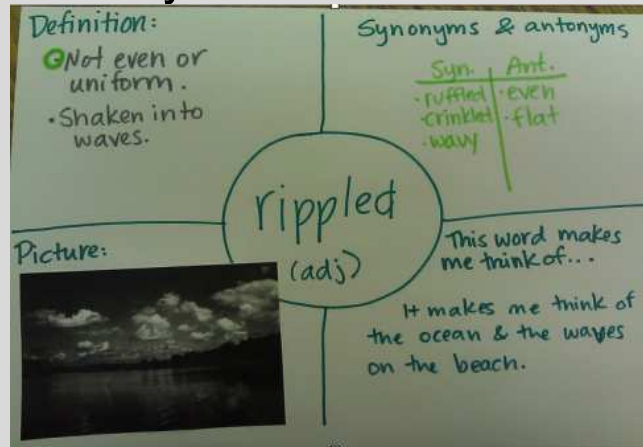 Definition:
Not even or
uniform.
• Shaken into
waves.
Synonyms & antonyms
Syn. Ant.
• ruffled • even
• crinkled • flat
• wavy
rippled
(adj)
Picture:
This word makes
me think of...
It makes me think of
the ocean & the waves
on the beach.